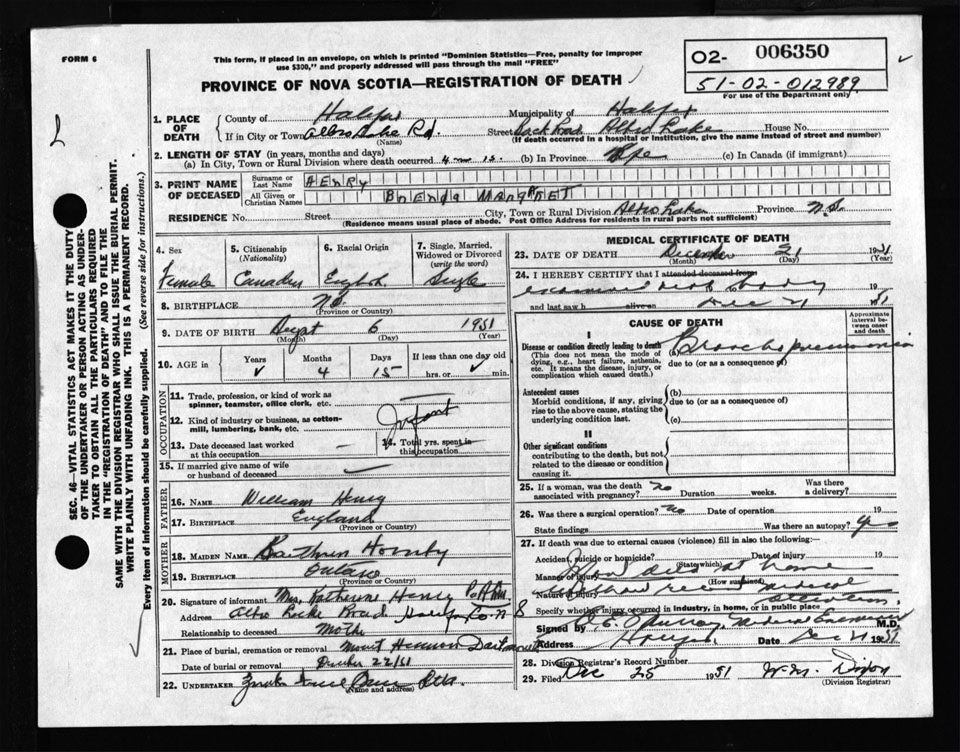 FORM 6
This form, if placed in an envelope, on which is printed "Dominion Statistics—Free, penalty for improper
use $300," and properly addressed will pass through the mail "FREE"
PROVINCE OF NOVA SCOTIA—REGISTRATION OF DEATH
02- 006350
51-02-012989
For use of the Department only
SEC. 46—VITAL STATISTICS ACT MAKES IT THE DUTY
OF THE UNDERTAKER OR PERSON ACTING AS UNDER-
TAKER TO OBTAIN ALL THE PARTICULARS REQUIRED
IN THE "REGISTRATION OF DEATH" AND TO FILE THE
SAME WITH THE DIVISION REGISTRAR WHO SHALL ISSUE THE BURIAL PERMIT.
WRITE PLAINLY WITH UNFADING INK. THIS IS A PERMANENT RECORD.
Every item of information should be carefully supplied. (See reverse side for instructions.)
1. PLACE OF DEATH
County of Halifax Municipality of Halifax
If in City or Town Albro Lake Rd. Street Albro Lake House No.
(Name) (If death occurred in a hospital or institution, give the name instead of street and number)
2. LENGTH OF STAY (in years, months and days)
(a) In City, Town or Rural Division where death occurred 4 m 15 (b) In Province Life (c) In Canada (if immigrant)
3. PRINT NAME OF DECEASED
Surname or Last Name HENRY
All Given or Christian Names BRENDA MARGARET
RESIDENCE No. Street City, Town or Rural Division Albro Lake Province N.S.
(Residence means usual place of abode. Post Office Address for residents in rural parts not sufficient)
4. Sex Female
5. Citizenship (Nationality) Canadian
6. Racial Origin English
7. Single, Married, Widowed or Divorced (write the word) Single
8. BIRTHPLACE N.S.
(Province or Country)
9. DATE OF BIRTH 6 1951
(Month) (Day) (Year)
10. AGE in Years Months 4 Days 15 If less than one day old hrs. or min.
OCCUPATION
11. Trade, profession, or kind of work as
spinner, teamster, office clerk, etc.
12. Kind of industry or business, as cotton-
mill, lumbering, bank, etc. Infant
13. Date deceased last worked
at this occupation
14. Total yrs. spent in
this occupation
15. If married give name of wife
or husband of deceased
FATHER
16. NAME William Henry
17. BIRTHPLACE England
(Province or Country)
MOTHER
18. MAIDEN NAME Hornby
19. BIRTHPLACE Ontario
(Province or Country)
20. Signature of informant Mrs. Katherine Henry
Address Albro Lake Road Halifax Co. N S
Relationship to deceased Mother
21. Place of burial, cremation or removal Mount Hermon Dartmouth
Date of burial or removal December 22/51
22. UNDERTAKER
(Name and address)
MEDICAL CERTIFICATE OF DEATH
23. DATE OF DEATH December 21 1951
(Month) (Day) (Year)
24. I HEREBY CERTIFY that I attended deceased from
examined dead body 19
and last saw h alive on Dec 21 1951
CAUSE OF DEATH
Approximate interval between onset and death
I
Disease or condition directly leading to death
(This does not mean the mode of
dying, e.g., heart failure, asthenia,
etc. It means the disease, injury, or
complication which caused death.)
(a) Bronchopneumonia
due to (or as a consequence of)
Antecedent causes
Morbid conditions, if any, giving
rise to the above cause, stating the
underlying condition last.
(b)
due to (or as a consequence of)
(c)
II
Other significant conditions
contributing to the death, but not
related to the disease or condition
causing it.
25. If a woman, was the death
associated with pregnancy? no Duration weeks. Was there
a delivery?
26. Was there a surgical operation? no Date of operation 19
State findings Was there an autopsy? yes
27. If death was due to external causes (violence) fill in also the following:
Accident, suicide or homicide? Date of injury 19
(State which)
Manner of injury died at home
(How sustained)
Nature of injury medical
attention.
Specify whether injury occurred in industry, in home, or in public place
Signed by Medical Examiner M.D.
Address Halifax Date Dec 21 1951
28. Division Registrar's Record Number
29. Filed Dec 25 1951 Dixon
(Division Registrar)